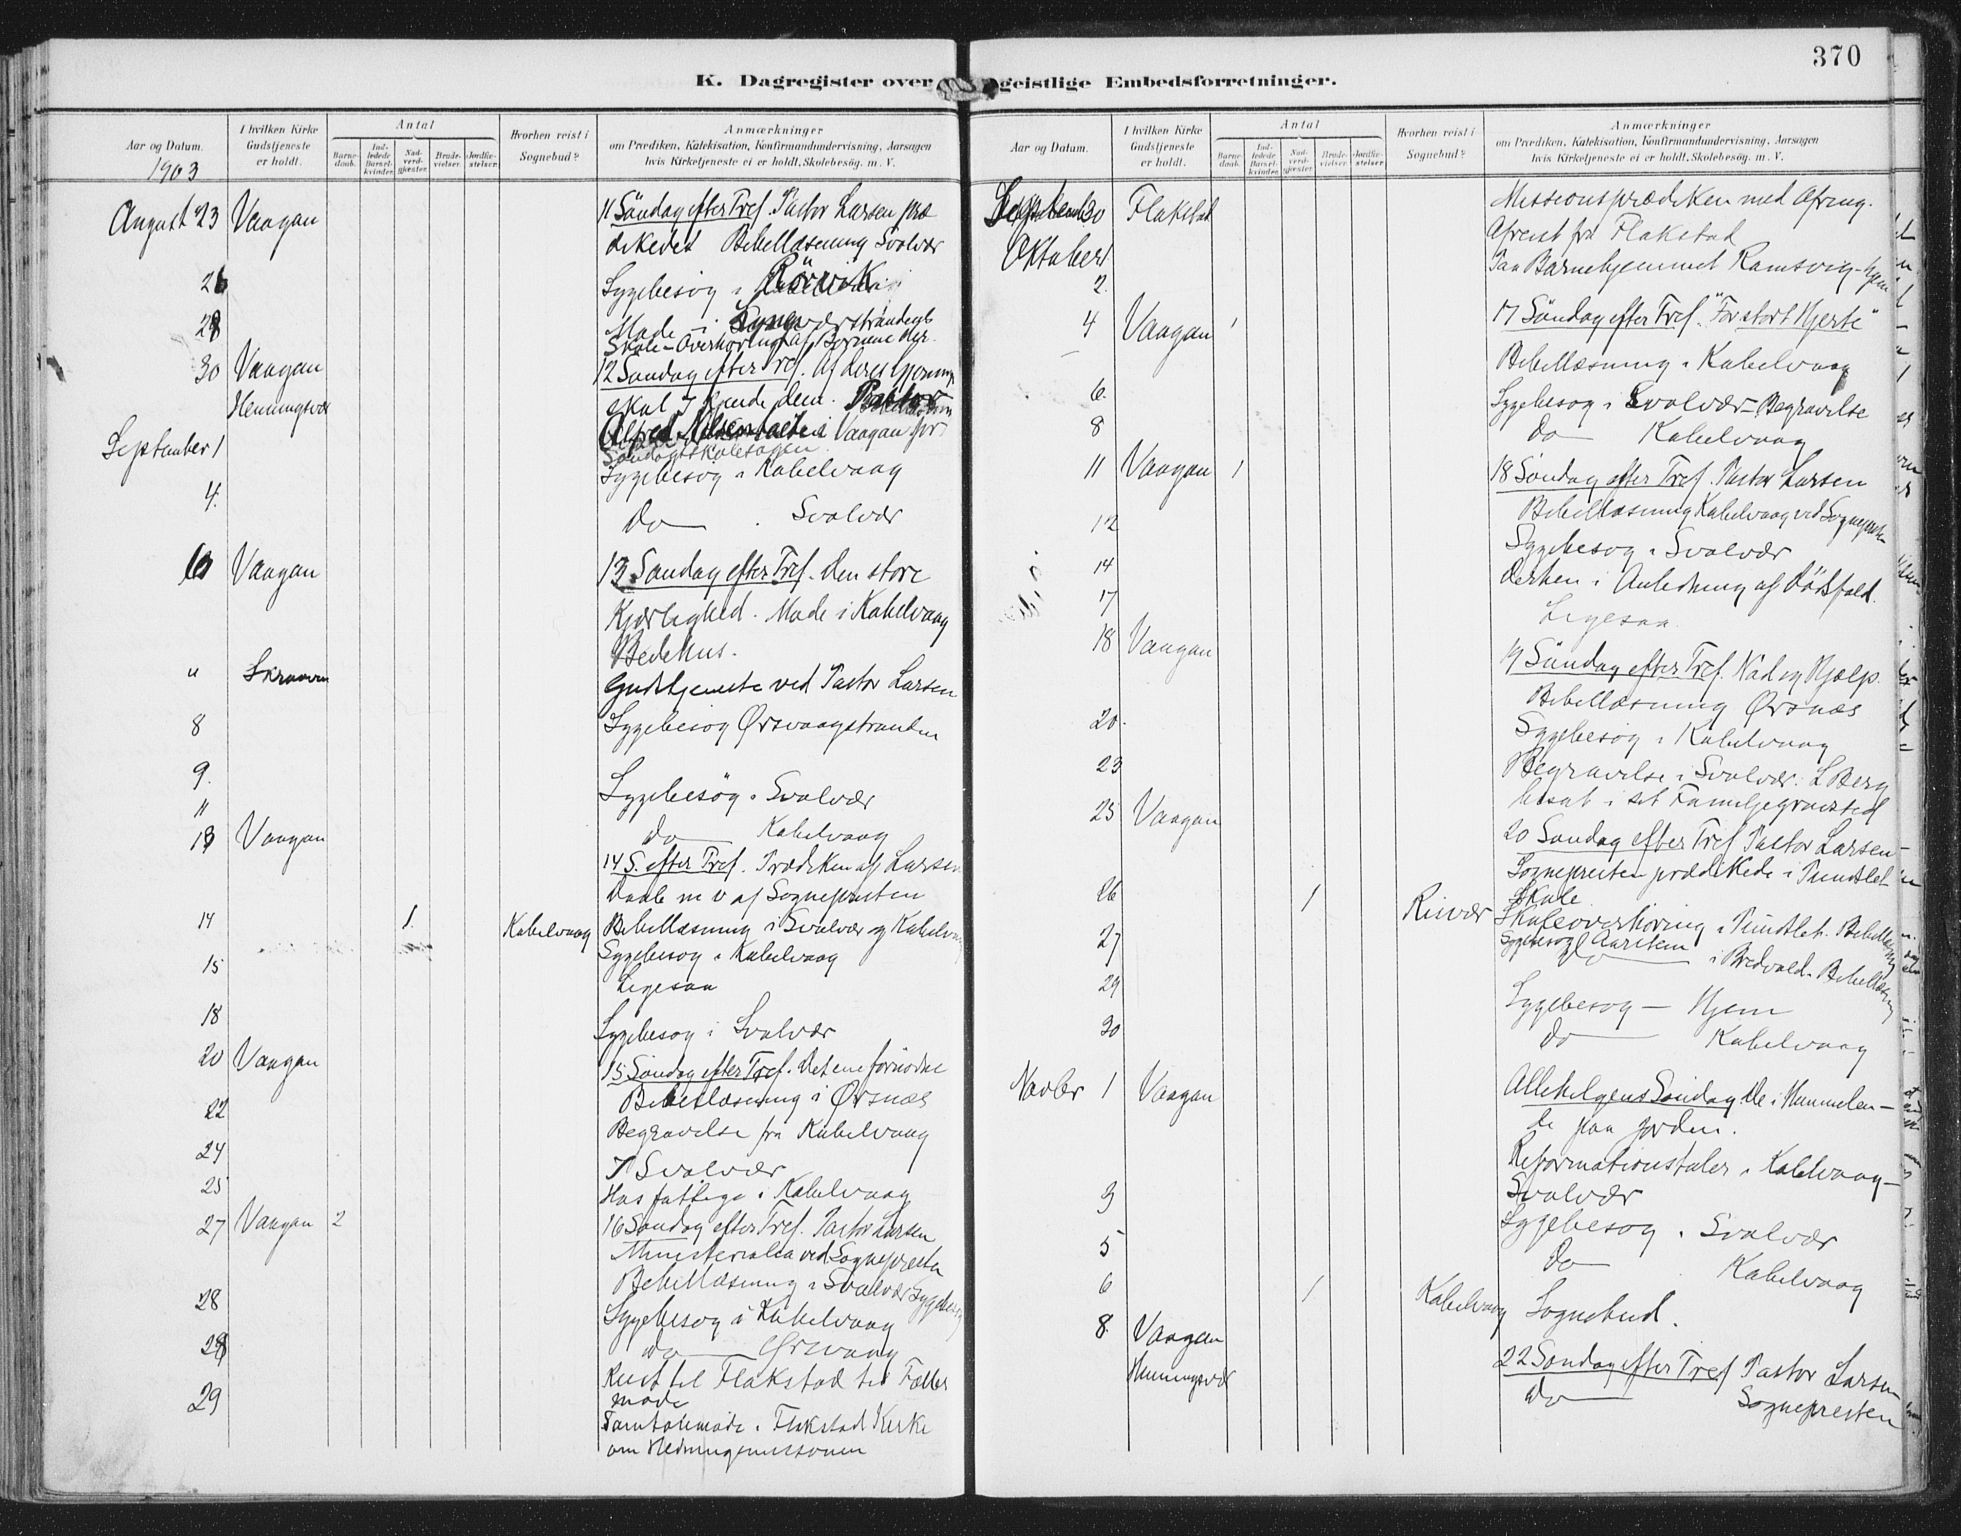 370
K. Dagregister over geistlige Embedsforretninger.
Aar og Datum.
I hvilken Kirke Gudstjeneste er holdt.
Antal
Barnedaab.
Indledede Barselkvinder.
Nadverdgjester.
Brudevielser.
Jordfæstelser.
Hvorhen reist i Sognebud?
Anmærkninger
om Prædiken, Katekisation, Konfirmandundervisning, Aarsagen
hvis Kirketjeneste ei er holdt, Skolebesøg. m. V.
1903
August 23 Vaagan 11 Söndag efter Tref. Pastor Larsen præ
dikedet Bibellæsning Svolvær
26 Sygebesög i Rörvik
28 Möde i
Skole-Overhöring af Börnene der.
30 Vaagan 12 Söndag efter Tref. Af deres
Henningsvær skal I kjende dem. Pastor
Alfred Nilsen i Vaagan for
Söndagsskolesagen
September 1 Sygebesög i Kabelvaag
4. Do Svolvær
6 Vaagan 13 Söndag efter Tref. Den store
Kjærlighed. Möde i Kabelvaag
Bedehus.
" Skraaven Gudstjeneste ved Pastor Larsen
8 Sygebesög Ørsvaagstranden
9. Sygebesög i Svolvær
11 Do Kabelvaag
13 Vaagan 14 S. efter Tref. Prædiken af Larsen
Daab m v af Sognepresten
14 1. Kabelvaag Bibellæsning i Svolvær og Kabelvaag
Sygebesög i Kabelvaag
15 Ligesaa
18 Sygebesög i Svolvær
20 Vaagan 15 Söndag efter Tref. Det ene fornödne
Bibellæsning i Ørsnæs
22 Begravelse fra Kabelvaag
24 Svolvær
25 Hos fattige i Kabelvaag
27 Vaagan 2 16 Söndag efter Tref. Pastor Larsen
Ministerialia ved Sognepresten
Bibellæsning i Svolvær Sygebesög
28 Sygebesög i Kabelvaag
28 do Ørsvaag
29 Reist til Flakstad til Fælles
möde
Samtalemöde i Flakstad Kirke
om Hedningemissionen
Aar og Datum.
I hvilken Kirke Gudstjeneste er holdt.
Antal
Barnedaab.
Indledede Barselkvinder.
Nadverdgjester.
Brudevielser.
Jordfæstelser.
Hvorhen reist i Sognebud?
Anmærkninger
om Prædiken, Katekisation, Konfirmandundervisning, Aarsagen
hvis Kirketjeneste ei er holdt, Skolebesøg. m. V.
Septemb 30 Flakstad Missionsprædiken med Ofring.
Oktober 1. Afreist fra Flakstad
2. Paa Barnehjemmet Ramsvig - hjem
4 Vaagan 1 17 Söndag efter Tref. "For stort Hjerte"
Bibellæsning i Kabelvaag
6. Sygebesög i Svolvær - Begravelse
8 Do Kabelvaag
11 Vaagan 1 18 Söndag efter Tref. Pastor Larsen
Bibellæsning Kabelvaag ved Sognepresten
12 Sygebesög i Svolvær
14 Derhen i Anledning af Dödsfald.
17 Ligesaa
18 Vaagan 19 Söndag efter Tref. Nöd og Hjælp.
Bibellæsning Ørsnæs
20. Sygebesög i Kabelvaag
23 Begravelse i Svolvær. L Berg
bisat i sit Familjegravsted
25 Vaagan 20 Söndag efter Tref Pastor Larsen
Sognepresten prædikede i Pundslet
Skole
26 1 Risvær Skoleoverhöring i Pundslet. Bibellæsning
27 Sygebesög Do i Bredvold. Bibellæsning
29 Sygebesög - Hjem
30 Do Kabelvaag
Novbr 1 Vaagan Allehelgens Söndag De i Himmelen -
de paa Jorden.
Reformationstaler i Kabelvaag -
Svolvær
3 Sygebesög i Svolvær
5 Do Kabelvaag
6 1 Kabelvaag Sognebud.
8. Vaagan 22 Söndag efter Tref Pastor Larsen
Henningsvær Do Sognepresten